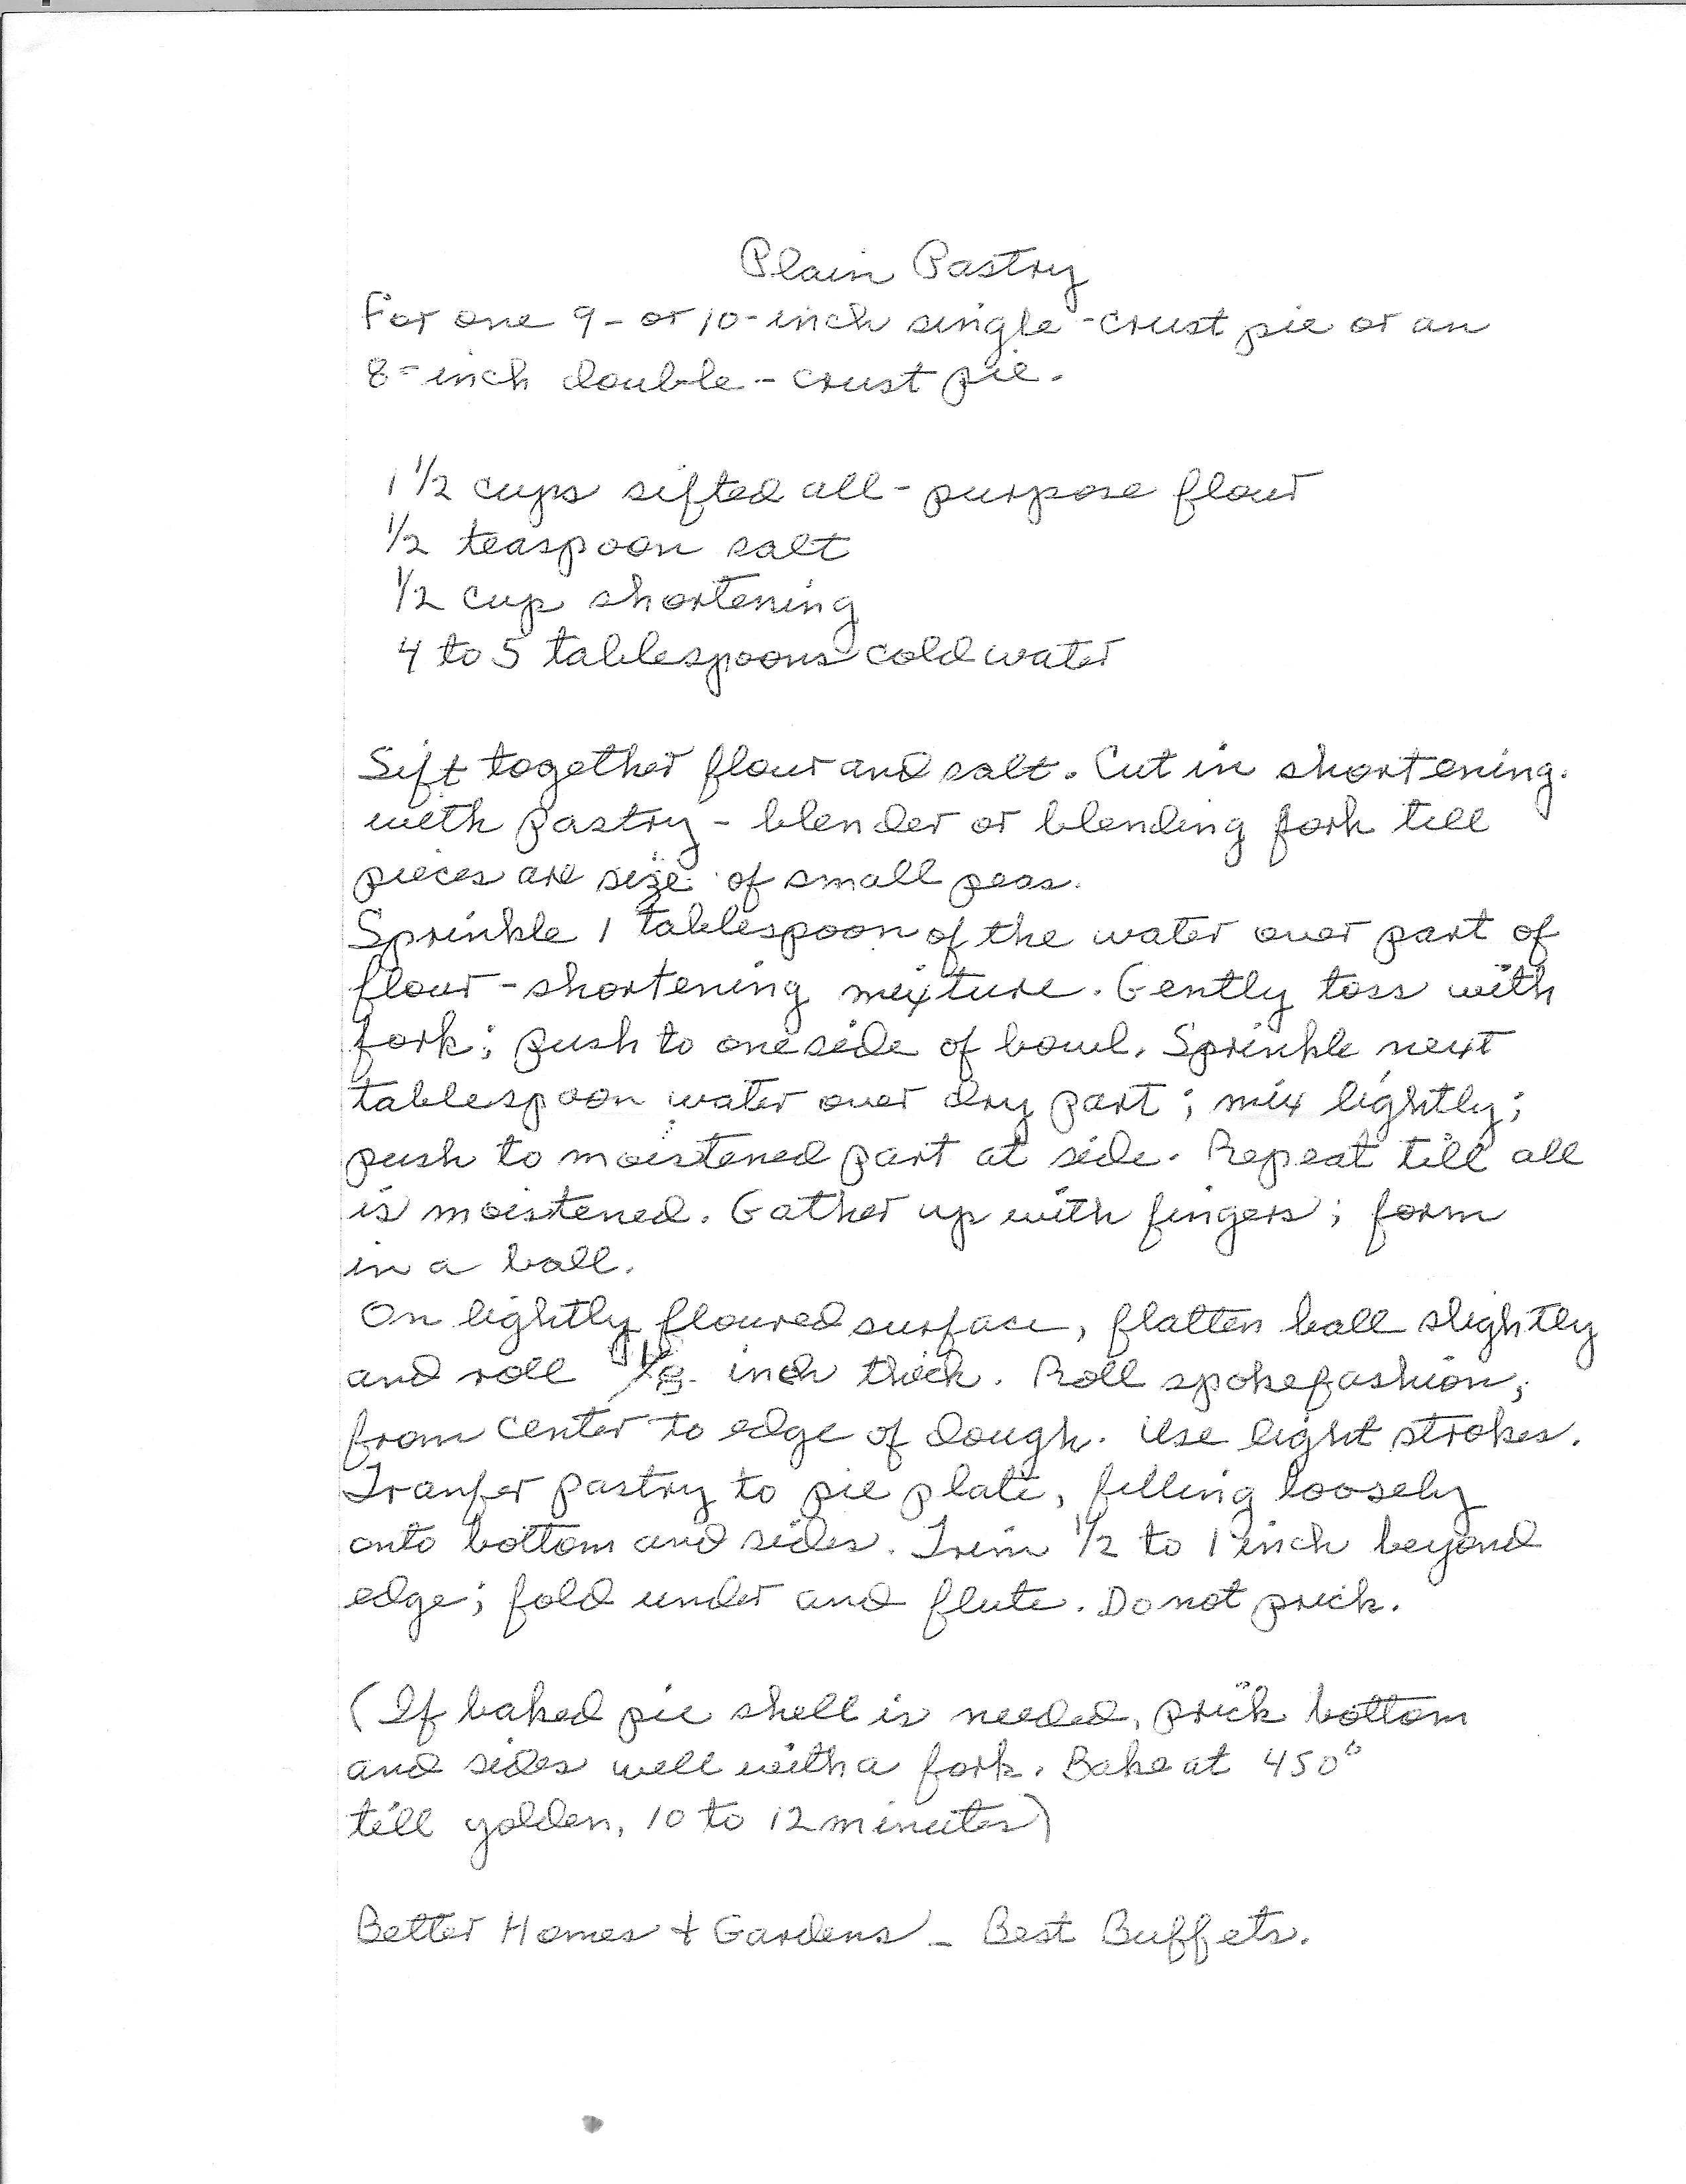 Plain Pastry
For one 9-or 10-inch single-crust pie or an
8-inch double-crust pie.
1 1/2 cups sifted all-purpose flour
1/2 teaspoon salt
1/2 cup shortening
4 to 5 tablespoons cold water
Sift together flour and salt. Cut in shortening
with pastry-blender or blending fork till
pieces are size of small peas.
Sprinkle 1 tablespoon of the water over part of
flour-shortening mixture. Gently toss with
fork; push to one side of bowl. Sprinkle next
tablespoon water over dry part; mix lightly;
push to moistened part at side. Repeat till all
is moistened. Gather up with fingers; form
in a ball.
On lightly floured surface, flatten ball slightly
and roll 1/8 inch thick. Roll spokefashion,
from center to edge of dough. Use light strokes.
Tranfer pastry to pie plate, filling loosely
onto bottom and sides. Trim 1/2 to 1 inch beyond
edge; fold under and flute. Do not prick.
(If baked pie shell is needed, prick bottom
and sides well with a fork. Bake at 450°
till golden, 10 to 12 minutes)
Better Homes + Gardens - Best Buffets.